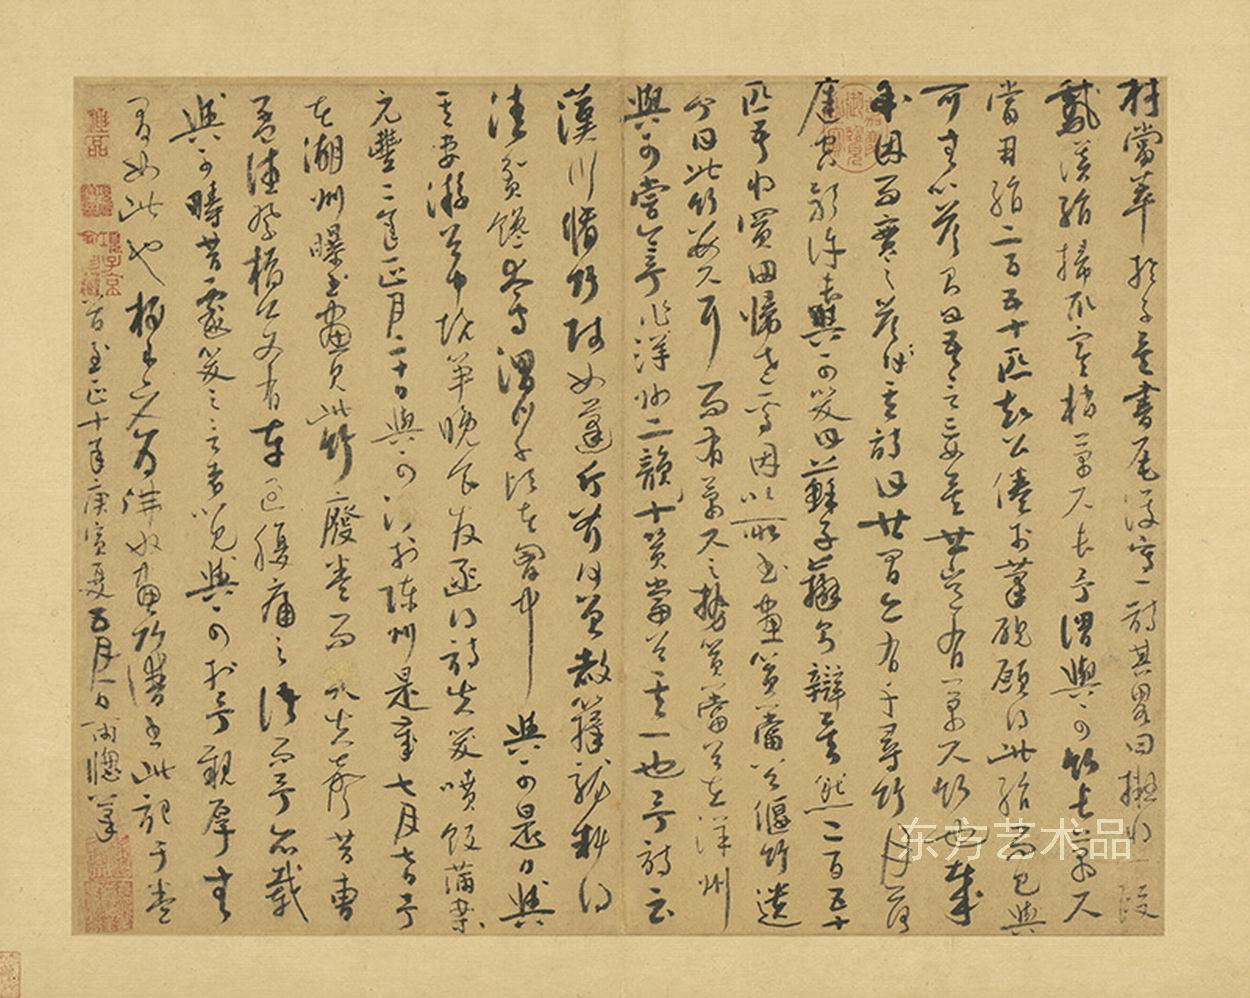 材當萃於子矣書尾復寫一詩其畧曰擬將一段
鵝溪絹掃取寒梢萬尺長予謂與可竹長萬尺
當用絹二百五十匹知公倦於筆硯願得此絹而已與
可無以答則曰吾言妄矣世豈有萬尺竹也哉
余因而實之答其詩曰世間亦有千尋竹月落
庭空影許長與可笑曰蘇子辯則辯矣然二百五十
匹吾將買田歸老焉因以所畫篔簹谷偃竹遺
余曰此竹數尺耳而有萬尺之勢篔簹谷在洋州
與可嘗令予作洋州二韻十篔簹谷其一也予詩云
漢川脩竹賤如蓬斤斧何曾赦籜龍料得
清貧饞太守渭川千頃在胷中 與可是日與
其妻游谷中燒筍晚食發函得詩失笑噴飯滿案
元豐二年正月二十日與可沒於陳州是歲七月七日予
在湖州曝書畫見此竹廢卷而哭失聲昔曹
孟德祭橋公文有車過腹痛之語而予亦載
與可疇昔戲笑之言者以見與可於予親厚無
間如此也 梅道人為佛奴畫竹譜書此記于卷
首至正十年庚寅夏五月一日雨牕筆
项子京
东方艺术品